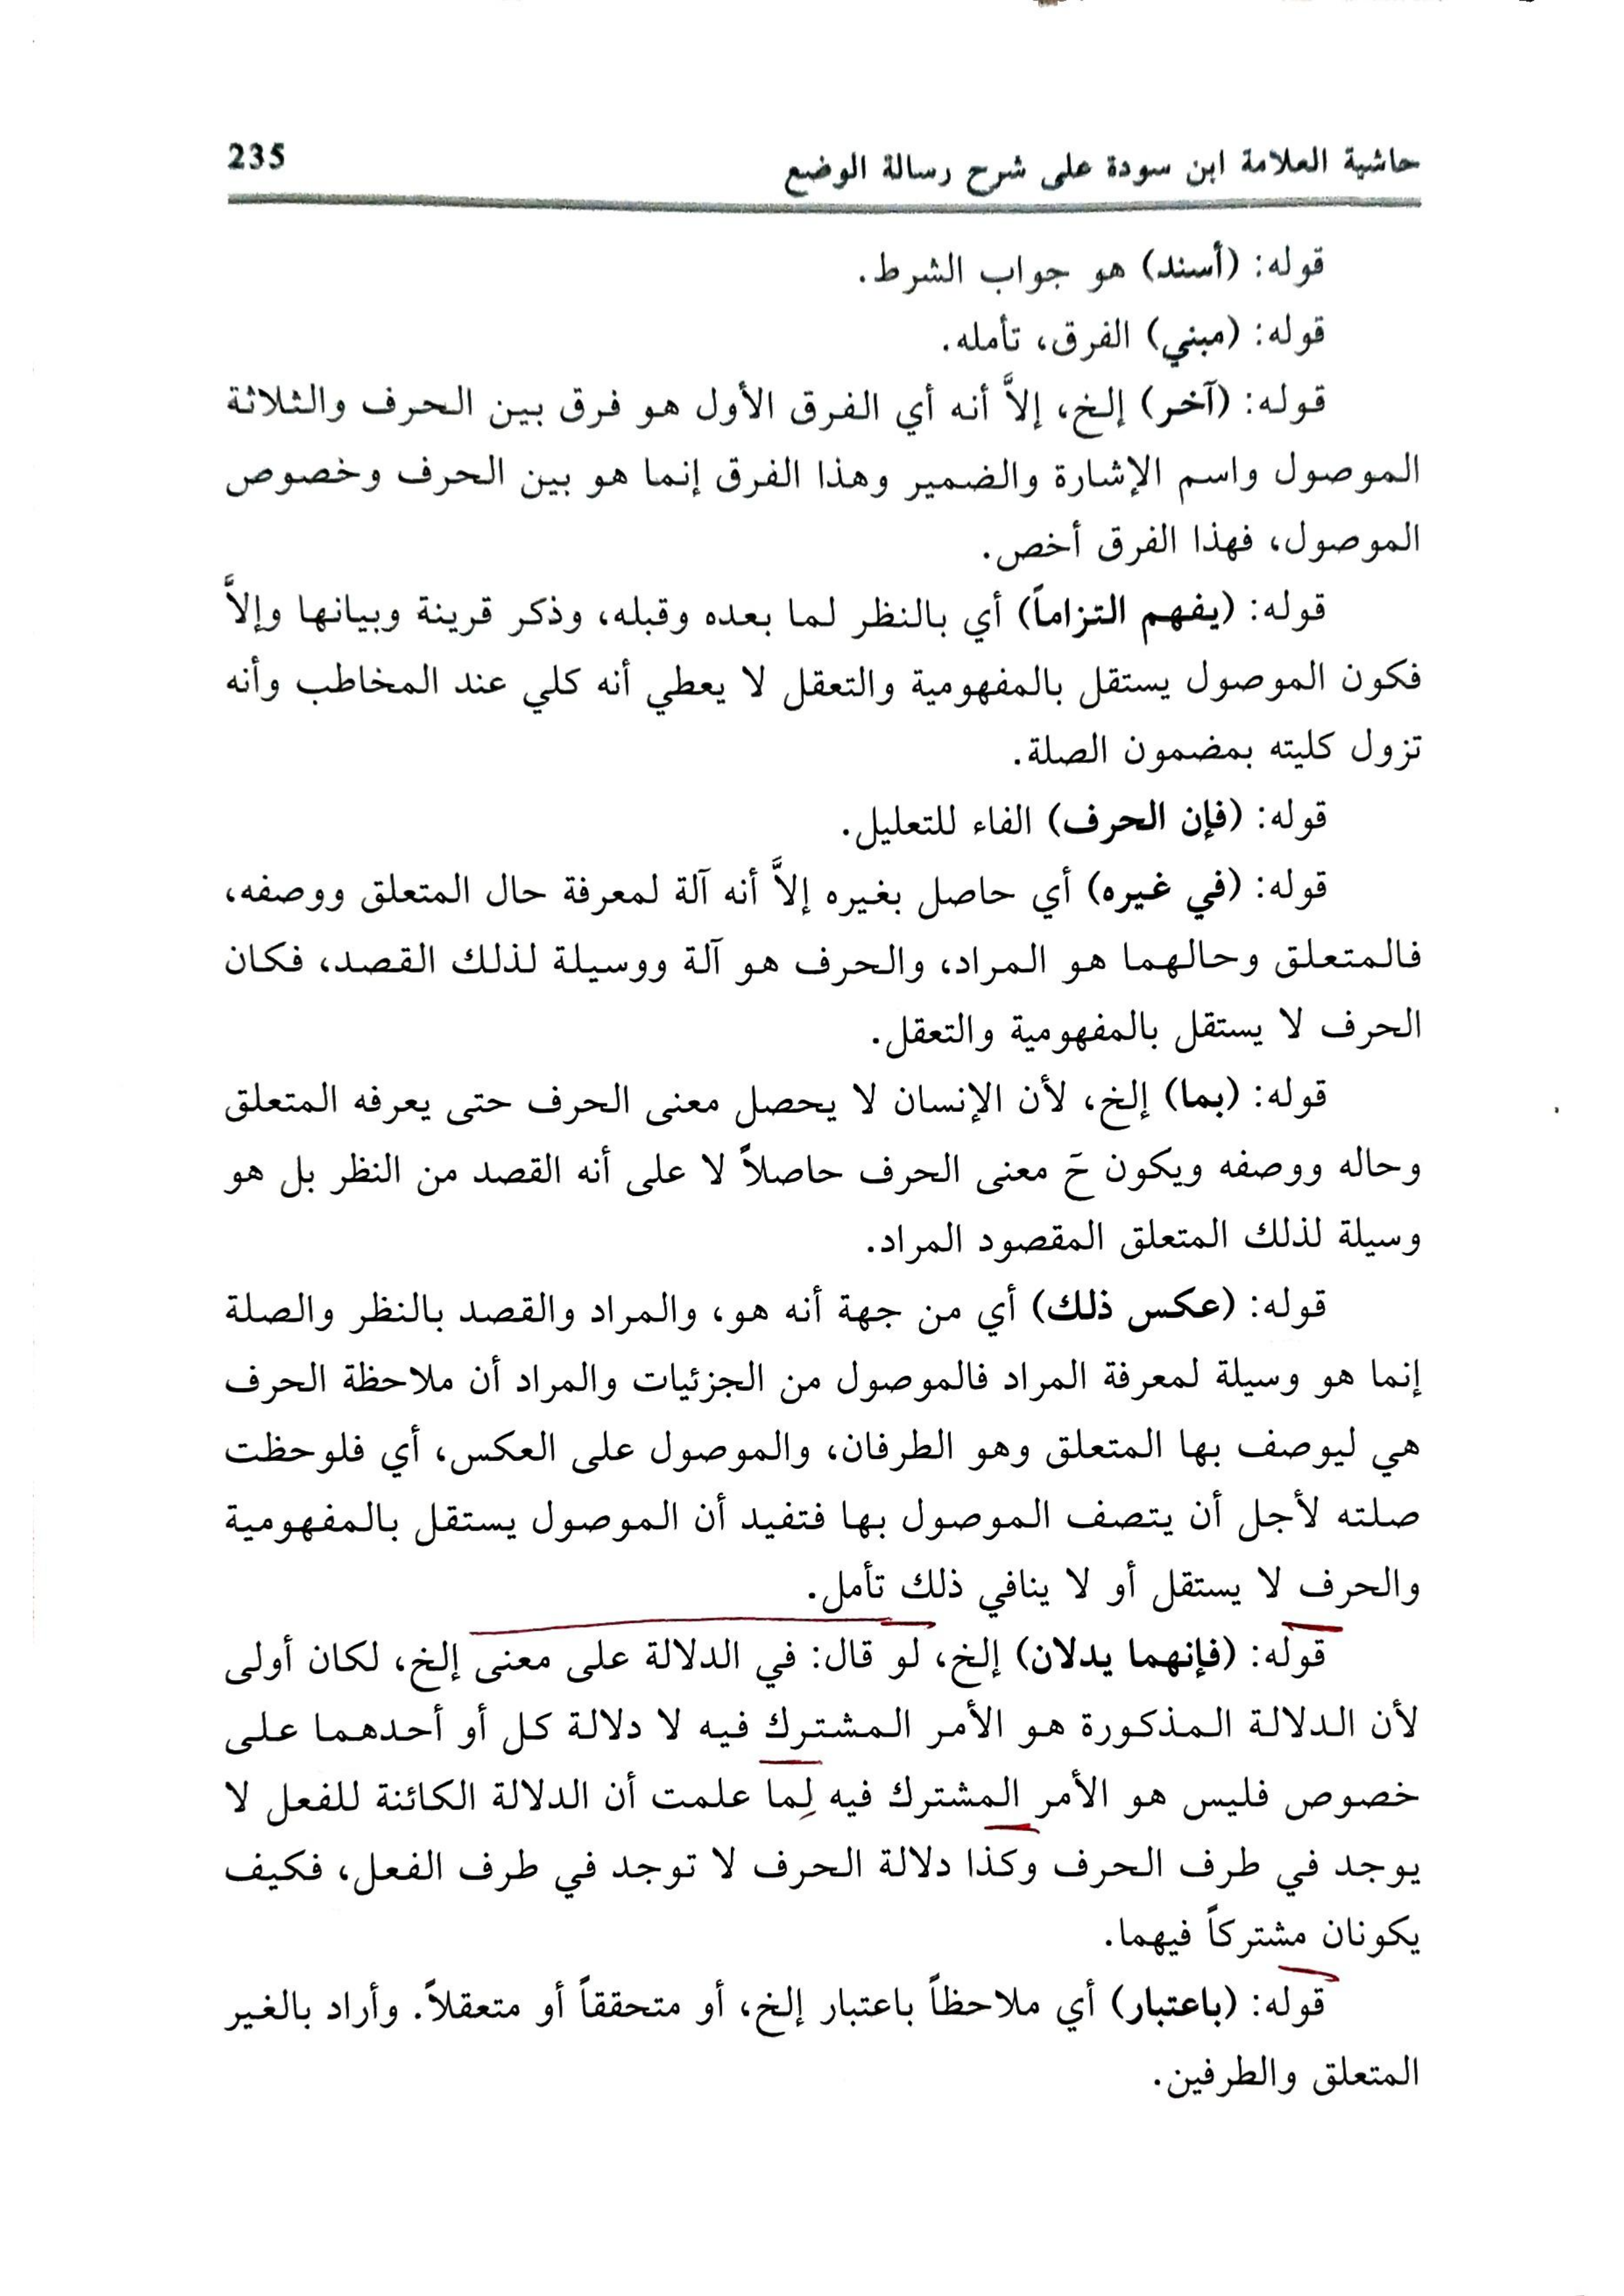 حاشية العلامة ابن سودة على شرح رسالة الوضع 235
قوله: (أسند) هو جواب الشرط.
قوله: (مبني) الفرق، تأمله.
قوله: (آخر) إلخ، إلاَّ أنه أي الفرق الأول هو فرق بين الحرف والثلاثة
الموصول واسم الإشارة والضمير وهذا الفرق إنما هو بين الحرف وخصوص
الموصول، فهذا الفرق أخص.
قوله: (يفهم التزاماً) أي بالنظر لما بعده وقبله، وذكر قرينة وبيانها وإلاَّ
فكون الموصول يستقل بالمفهومية والتعقل لا يعطي أنه كلي عند المخاطب وأنه
تزول كليته بمضمون الصلة.
قوله: (فإن الحرف) الفاء للتعليل.
قوله: (في غيره) أي حاصل بغيره إلاَّ أنه آلة لمعرفة حال المتعلق ووصفه،
فالمتعلق وحالهما هو المراد، والحرف هو آلة ووسيلة لذلك القصد، فكان
الحرف لا يستقل بالمفهومية والتعقل.
قوله: (بما) إلخ، لأن الإنسان لا يحصل معنى الحرف حتى يعرفه المتعلق
وحاله ووصفه ويكون حَ معنى الحرف حاصلاً لا على أنه القصد من النظر بل هو
وسيلة لذلك المتعلق المقصود المراد.
قوله: (عكس ذلك) أي من جهة أنه هو، والمراد والقصد بالنظر والصلة
إنما هو وسيلة لمعرفة المراد فالموصول من الجزئيات والمراد أن ملاحظة الحرف
هي ليوصف بها المتعلق وهو الطرفان، والموصول على العكس، أي فلوحظت
صلته لأجل أن يتصف الموصول بها فتفيد أن الموصول يستقل بالمفهومية
والحرف لا يستقل أو لا ينافي ذلك تأمل.
قوله: (فإنهما يدلان) إلخ، لو قال: في الدلالة على معنى إلخ، لكان أولى
لأن الدلالة المذكورة هو الأمر المشترك فيه لا دلالة كل أو أحدهما على
خصوص فليس هو الأمر المشترك فيه لِما علمت أن الدلالة الكائنة للفعل لا
يوجد في طرف الحرف وكذا دلالة الحرف لا توجد في طرف الفعل، فكيف
يكونان مشتركاً فيهما.
قوله: (باعتبار) أي ملاحظاً باعتبار إلخ، أو متحققاً أو متعقلاً. وأراد بالغير
المتعلق والطرفين.